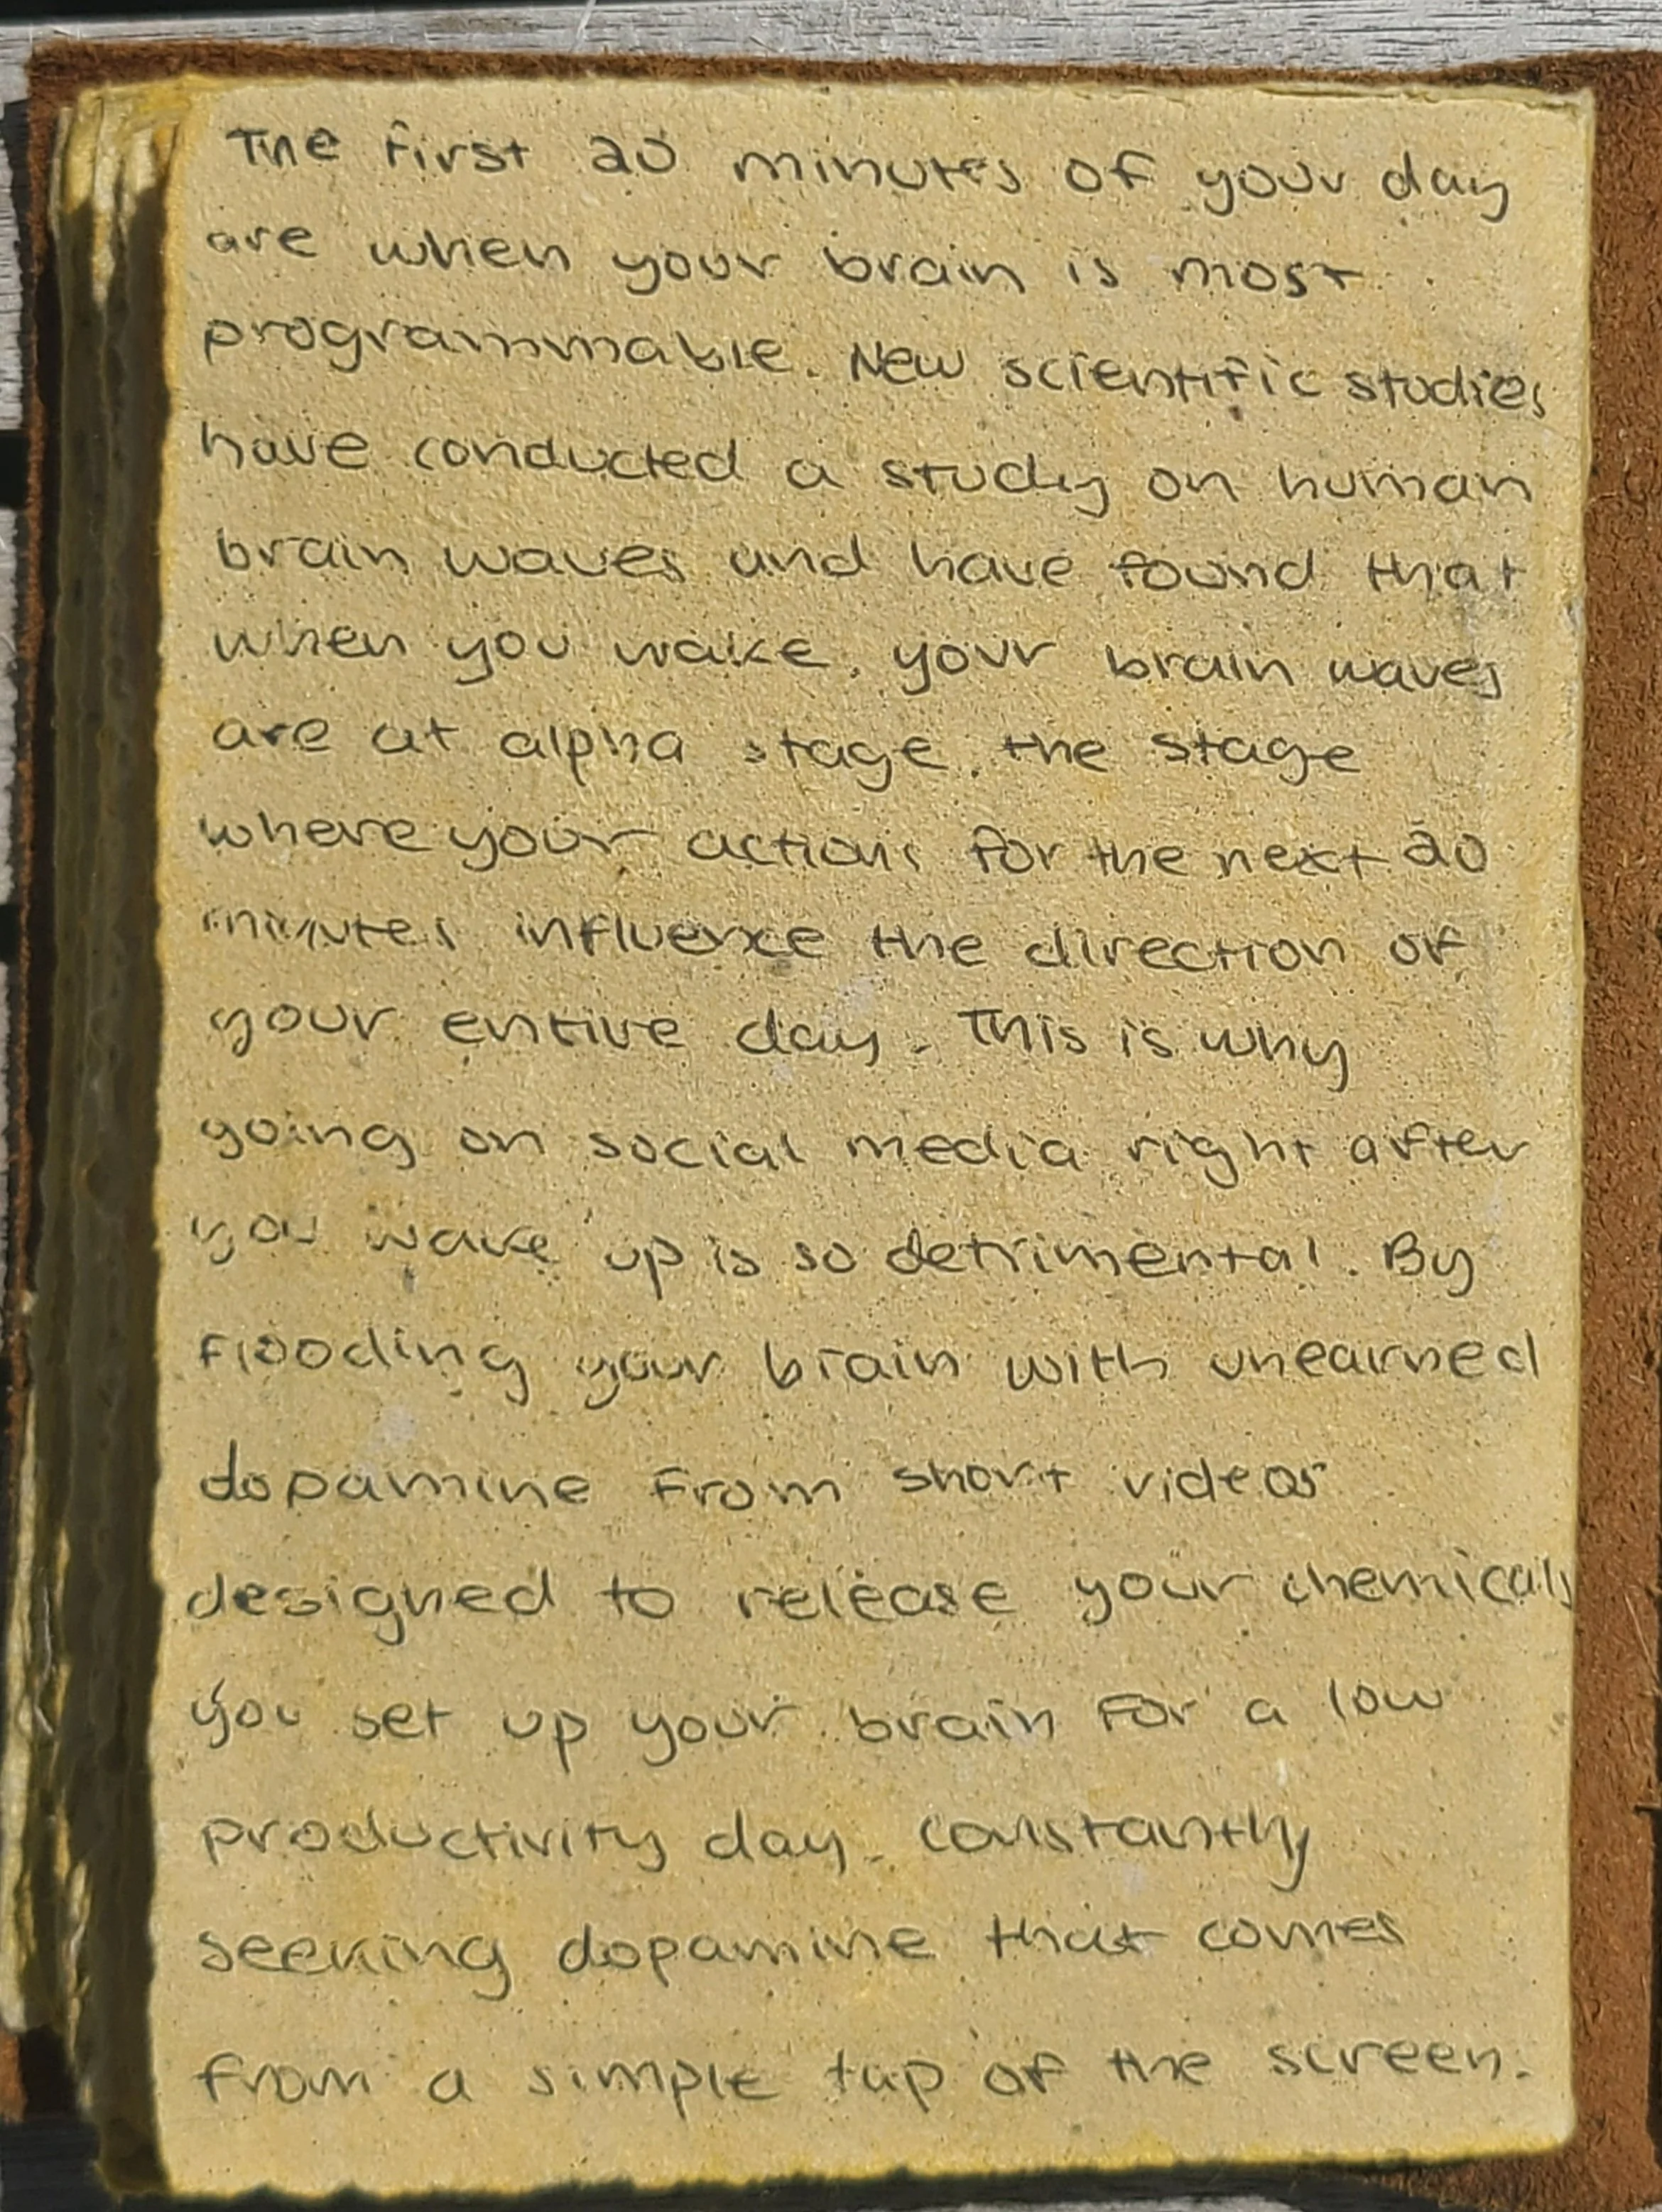 The first 20 minutes of your day
are when your brain is most
programmable. New scientific studies
have conducted a study on human
brain waves and have found that
when you wake, your brain waves
are at alpha stage, the stage
where your actions for the next 20
minutes influence the direction of
your entire day. This is why
going on social media right after
you wake up is so detrimental. By
flooding your brain with unearned
dopamine from short videos
designed to release your chemicals
you set up your brain for a low
productivity day. constantly
seeking dopamine that comes
from a simple tap of the screen.